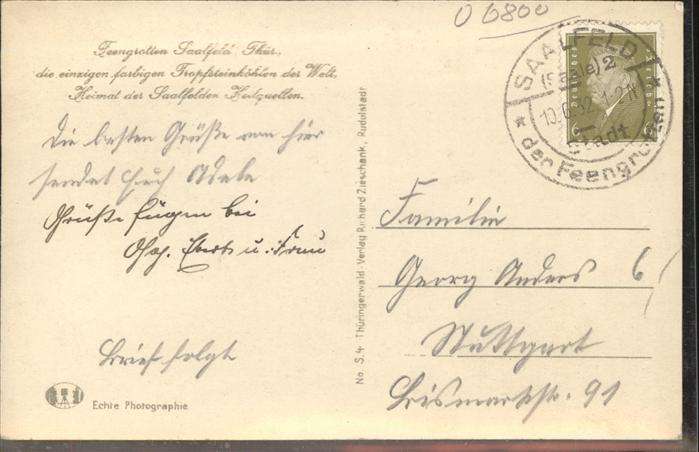 O 6800
Feengrotten Saalfeld Thür.,
die einzigen farbigen Tropfsteinhöhlen der Welt.
Heimat der Saalfelder Heilquellen.
Die besten Grüße von hier
sendet Euch Adele
Grüße fügen bei
u. Frau
Brief folgt
Echte Photographie
No. S.4 Thüringerwald-Verlag Richard Zieschank, Rudolstadt
SAALFELD
(Saale) 2
Stadt
der Feengrotten
Familie
Georg Anders
Stuttgart
Bismarckstr. 91